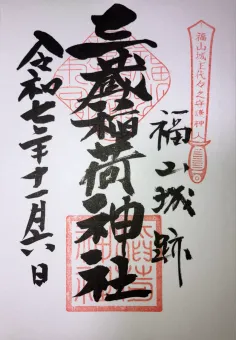 福山城主代々之守護神
福山城跡
三蔵稲荷神社
令和七年十一月六日